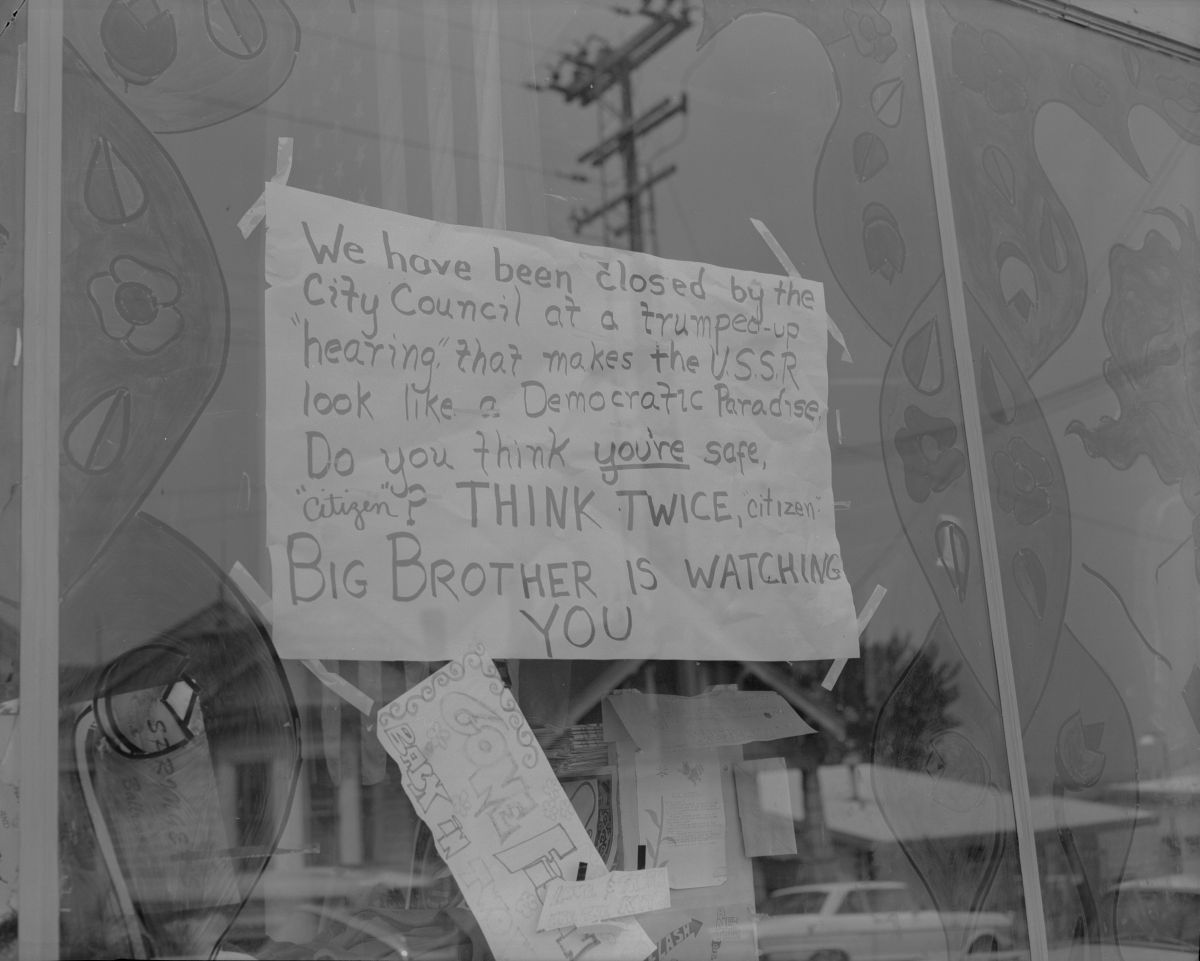 We have been closed by the
City Council at a trumped-up
"hearing," that makes the U.S.S.R
look like a Democratic Paradise.
Do you think you're safe,
"citizen"? THINK TWICE, "citizen"
BIG BROTHER IS WATCHING
YOU
GONE
BACK IN